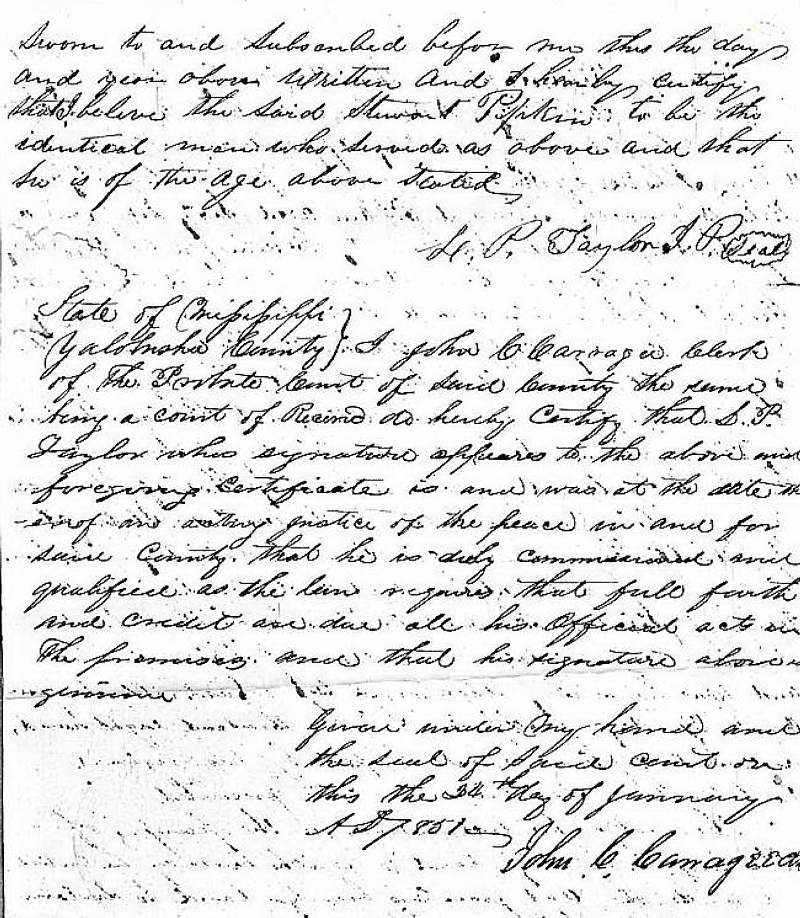 Sworn to and Subscribed before me this the day
and year above Written And I hereby certify
that I beleve the said Stewart Pipkin to be the
identical man who served as above and that
he is of the age above Stated
P. Taylor J. P. Seal
State of Mississippi }
Yalobusha County } I John C Carragee Clerk
of the Probate Court of said County the same
being a court of Record do hereby Certify that S. P.
Taylor whos signature appeares to the above and
foregoing Certificate is and was at the date th
erof an acting justice of the peace in and for
said County that he is duly commissioned and
qualified as the law requires that full faith
and credit are due all his Official acts in
the premises and that his signature above is
genuine
Given under My hand and
the seal of said court on
this the day of January
A D 1851
John C. Carragee